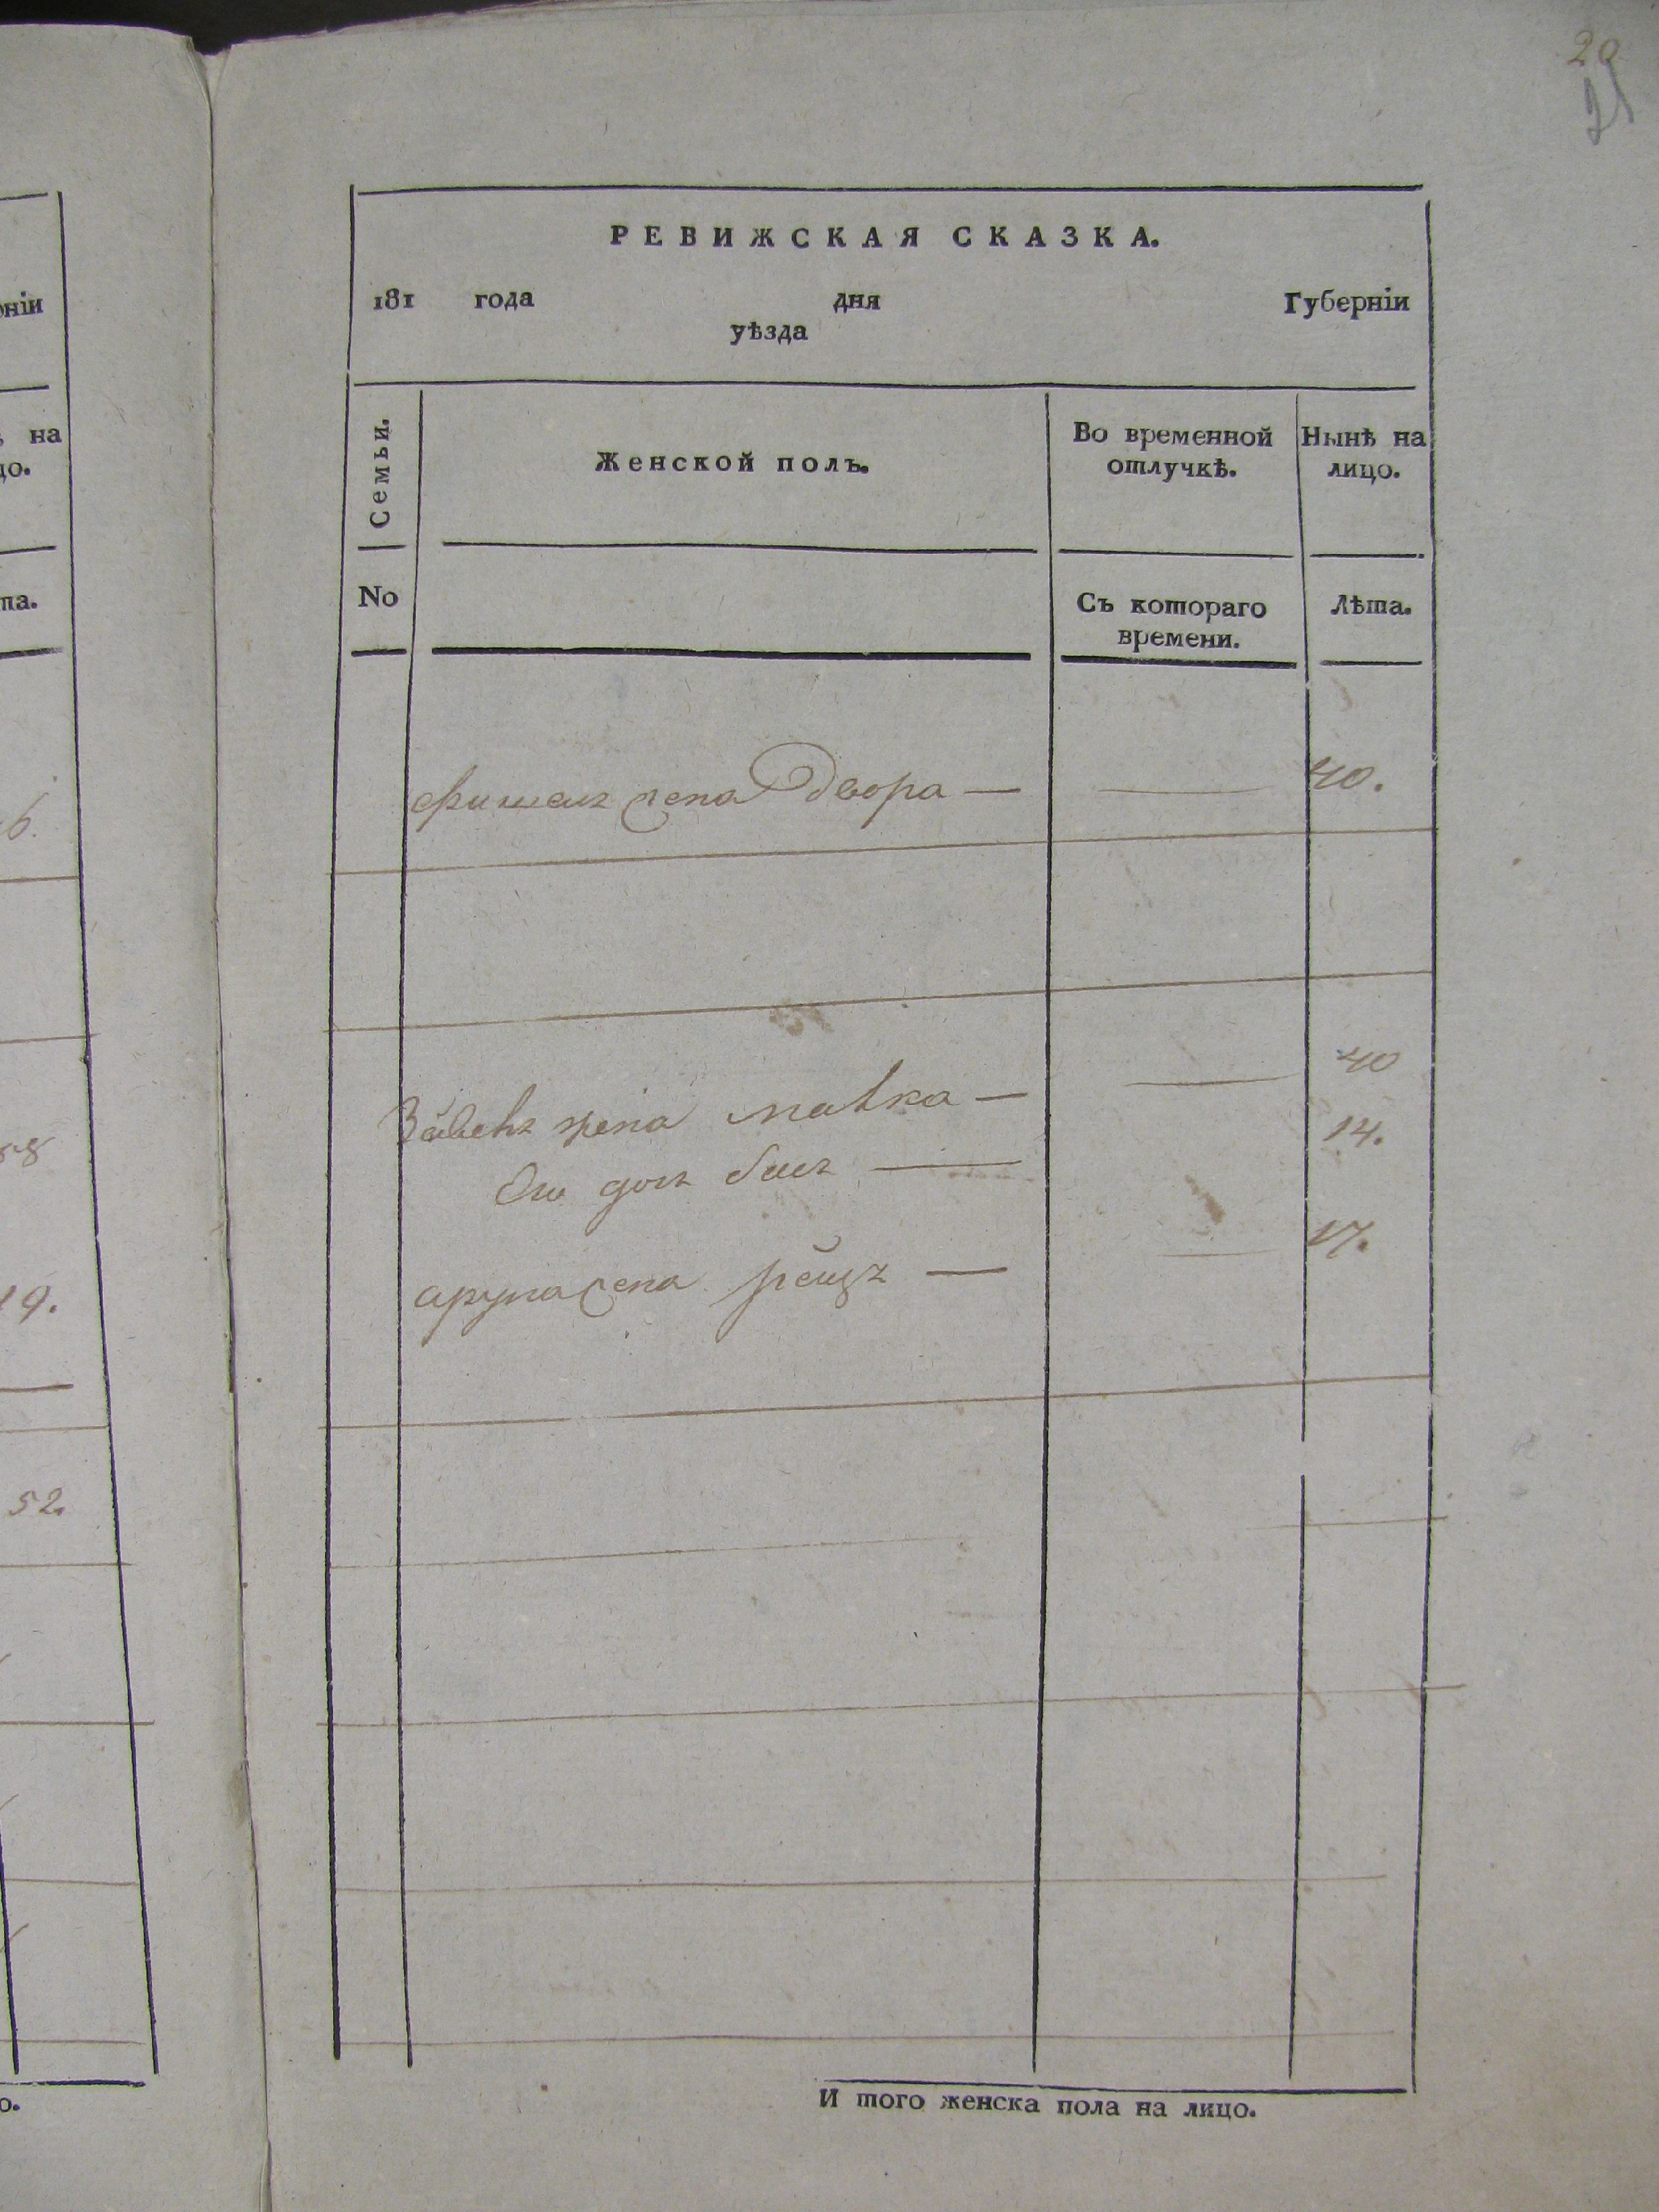 20
РЕВИЖСКАЯ СКАЗКА.
181 года дня Губерніи
уѣзда
Семьи.
Женской полъ.
Во временной отлучкѣ.
Нынѣ на лицо.
No
Съ котораго времени.
Лѣта.
жена Двора — — 40.
жена малка — — 40
дочь — 14.
жена — — 17.
И того женска пола на лицо.
ніи
на
о.
па.
6.
58
19.
52.
о.